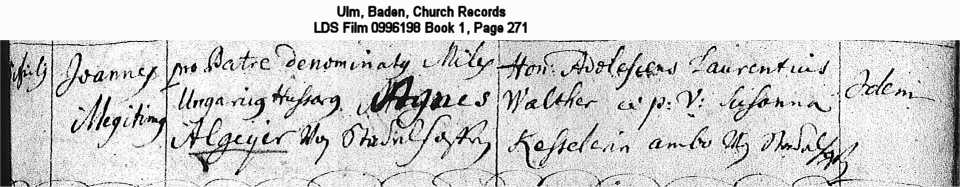 Ulm, Baden, Church Records
LDS Film 0996198 Book 1, Page 271
Joannes
Illegitimq
pro Patre denominatq Miles
Ungariq Hussarq Agnes
Algeyer Von
Hon: Adolescens Laurentius
Walther et p: V: Susanna
Kesselerin ambo Von
Idem